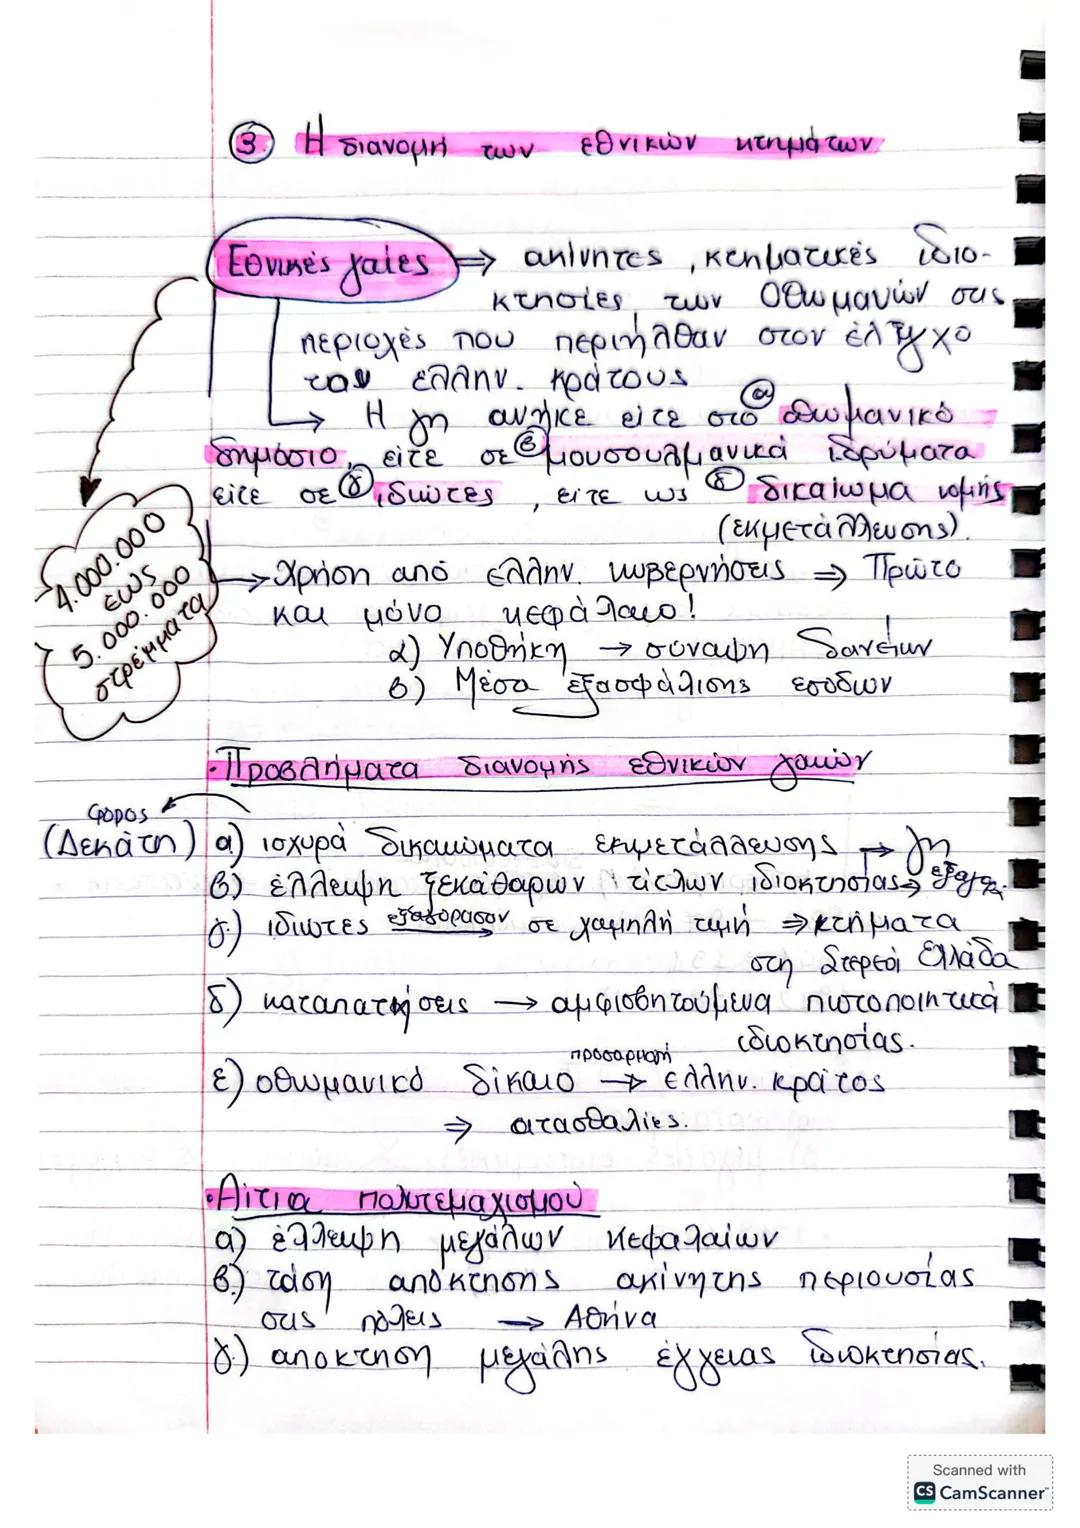 ③ Η διανομή των εθνικών κτημάτων
Εθνικές γαίες ⇒ ακίνητες, κτηματικές ιδιο-
κτησίες των Οθωμανών στις
περιοχές που περιήλθαν στον έλεγχο
του ελλην. κράτους
→ Η γη ανήκε είτε στο ⓐ οθωμανικό
δημόσιο, είτε σε ⓑ μουσουλμανικά ιδρύματα
είτε σε ⓖ ιδιώτες, είτε ως ⓓ δικαίωμα νομής
(εκμετάλλευσης).
4.000.000
έως
5.000.000
στρέμματα
→ Χρήση από ελλην. κυβερνήσεις ⇒ Πρώτο
και μόνο κεφάλαιο!
α) Υποθήκη → σύναψη δανείων
β) Μέσα εξασφάλισης εσόδων
·Προβλήματα διανομής εθνικών γαιών
φόρος
(Δεκάτη) α) ισχυρά δικαιώματα εκμετάλλευσης → γη
β) έλλειψη ξεκάθαρων τίτλων ιδιοκτησίας →
γ) ιδιώτες εξαγόρασαν σε χαμηλή τιμή ⇒ κτήματα
στη Στερεά Ελλάδα
δ) καταπατήσεις → αμφισβητούμενα πιστοποιητικά
ιδιοκτησίας.
προσαρμογή
ε) οθωμανικό δίκαιο → ελλην. κράτος
⇒ ατασθαλίες.
·Αίτια πολυτεμαχισμού
α) έλλειψη μεγάλων κεφαλαίων
β) τάση απόκτησης ακίνητης περιουσίας
στις πόλεις → Αθήνα
γ) απόκτηση μεγάλης έγγειας ιδιοκτησίας.
Scanned with
CS CamScanner